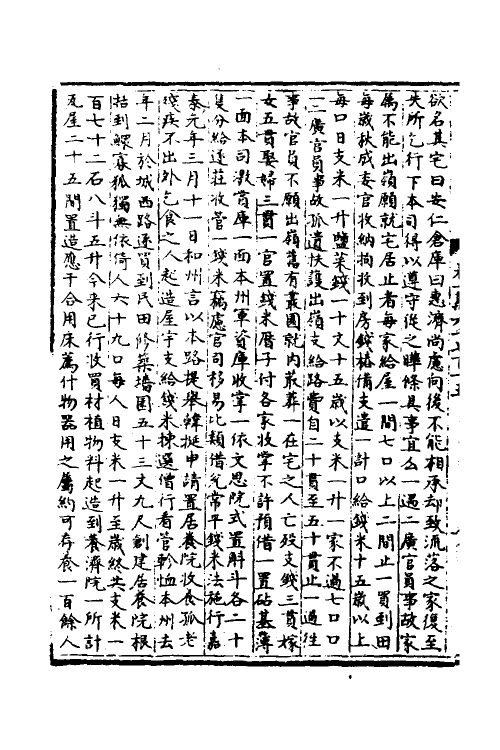 欲名其宅曰安仁倉庫曰惠濟尚慮向後不能相承却致流落之家復至
失所乞行下本司得以遵守從之曄條具事宜么一過二廣官員事故家
屬不能出嶺願就宅居止者每家給屋一間七口以上二間止一買到田
每歲秋成委官收納拘收到房錢樁備支遣一計口給錢米十五歲以上
每口日支米一升鹽菜錢一十文十五歲以支米一升一家不過七口口
二廣官員事故孤遺扶護出嶺支給路費自二十貫至五十貫止一過往
事故官員不願出嶺舊有叢園就內敢葬一在宅之人亡歿支錢三貫嫁
女五貫娶婦三貫一官置錢米曆子付各家收掌不許預借一置砧基簿
一面本司激賞庫一面本州軍資庫收掌一依文思院式置斛斗各二十
隻分給逐莊收管一場米竊慮官司移易比類借兌常平錢米法施行嘉
泰元年三月十一日和州言以本路提舉韓挺申請置居養院收養孤老
殘疾不出外乞食之人起造屋宇支給錢米揀選僧行看管軫恤本州去
年二月於城西路逐買到民田修築墻圍五十三丈九尺創建居養院根
括到鰥寡孤獨無依倚人六十九口每人日支米一升至歲終共支米一
百七十二石八斗五升今來已行收買材植物料起造到養濟院一所計
瓦屋二十五間置造應干合用床薦什物器用之屬約可存養一百餘人